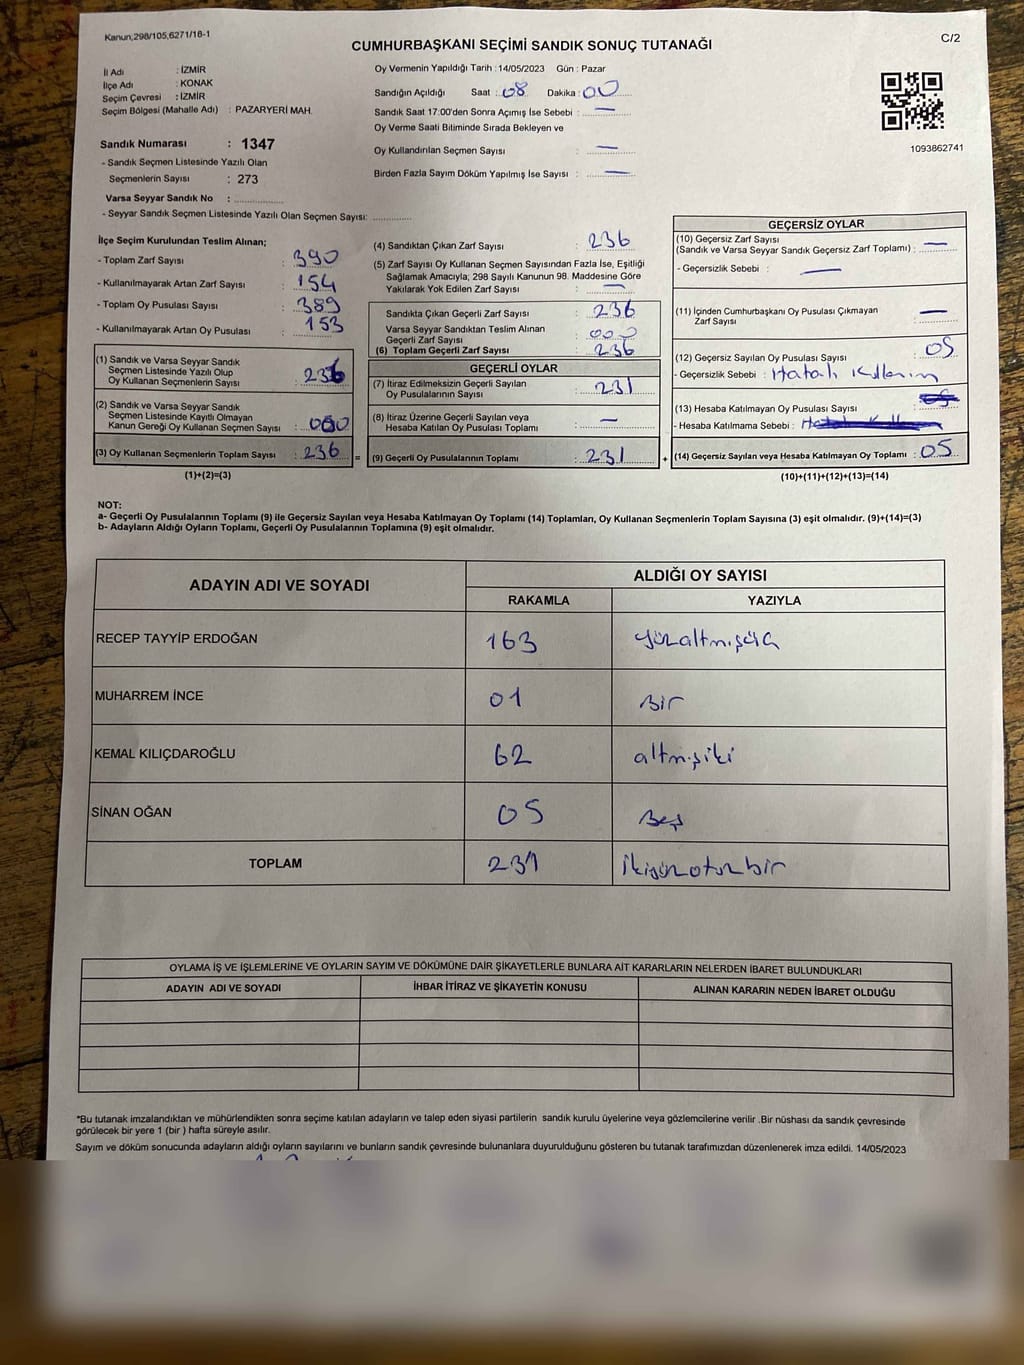 Kanun,298/105,6271/16-1
C/2
CUMHURBAŞKANI SEÇİMİ SANDIK SONUÇ TUTANAĞI
İl Adı : İZMİR
İlçe Adı : KONAK
Seçim Çevresi : İZMİR
Seçim Bölgesi (Mahalle Adı) : PAZARYERİ MAH.
Sandık Numarası : 1347
- Sandık Seçmen Listesinde Yazılı Olan
Seçmenlerin Sayısı : 273
Varsa Seyyar Sandık No :
- Seyyar Sandık Seçmen Listesinde Yazılı Olan Seçmen Sayısı:
Oy Vermenin Yapıldığı Tarih : 14/05/2023 Gün : Pazar
Sandığın Açıldığı Saat : 08 Dakika : 00
Sandık Saat 17:00'den Sonra Açımış İse Sebebi : —
Oy Verme Saati Bitiminde Sırada Bekleyen ve
Oy Kullandırılan Seçmen Sayısı : —
Birden Fazla Sayım Döküm Yapılmış İse Sayısı : —
1093862741
İlçe Seçim Kurulundan Teslim Alınan;
- Toplam Zarf Sayısı : 390
- Kullanılmayarak Artan Zarf Sayısı : 154
- Toplam Oy Pusulası Sayısı : 389
- Kullanılmayarak Artan Oy Pusulası : 153
(1) Sandık ve Varsa Seyyar Sandık
Seçmen Listesinde Yazılı Olup
Oy Kullanan Seçmenlerin Sayısı : 236
(2) Sandık ve Varsa Seyyar Sandık
Seçmen Listesinde Kayıtlı Olmayan
Kanun Gereği Oy Kullanan Seçmen Sayısı : 000
(3) Oy Kullanan Seçmenlerin Toplam Sayısı : 236 =
(1)+(2)=(3)
(4) Sandıktan Çıkan Zarf Sayısı : 236
(5) Zarf Sayısı Oy Kullanan Seçmen Sayısından Fazla İse, Eşitliği
Sağlamak Amacıyla; 298 Sayılı Kanunun 98. Maddesine Göre
Yakılarak Yok Edilen Zarf Sayısı : —
Sandıkta Çıkan Geçerli Zarf Sayısı : 236
Varsa Seyyar Sandıktan Teslim Alınan
Geçerli Zarf Sayısı : 000
(6) Toplam Geçerli Zarf Sayısı : 236
GEÇERLİ OYLAR
(7) İtiraz Edilmeksizin Geçerli Sayılan
Oy Pusulalarının Sayısı : 231
(8) İtiraz Üzerine Geçerli Sayılan veya
Hesaba Katılan Oy Pusulaları Toplamı : —
(9) Geçerli Oy Pusulalarının Toplamı : 231 +
GEÇERSİZ OYLAR
(10) Geçersiz Zarf Sayısı
(Sandık ve Varsa Seyyar Sandık Geçersiz Zarf Toplamı) : —
- Geçersizlik Sebebi : —
(11) İçinden Cumhurbaşkanı Oy Pusulası Çıkmayan
Zarf Sayısı : —
(12) Geçersiz Sayılan Oy Pusulası Sayısı : 05
- Geçersizlik Sebebi : Hatalı Kullanım
(13) Hesaba Katılmayan Oy Pusulası Sayısı : 05
- Hesaba Katılmama Sebebi :
(14) Geçersiz Sayılan veya Hesaba Katılmayan Oy Toplamı : 05
(10)+(11)+(12)+(13)=(14)
NOT:
a- Geçerli Oy Pusulalarının Toplamı (9) ile Geçersiz Sayılan veya Hesaba Katılmayan Oy Toplamı (14) Toplamları, Oy Kullanan Seçmenlerin Toplam Sayısına (3) eşit olmalıdır. (9)+(14)=(3)
b- Adayların Aldığı Oyların Toplamı, Geçerli Oy Pusulalarının Toplamına (9) eşit olmalıdır.
ADAYIN ADI VE SOYADI
ALDIĞI OY SAYISI
RAKAMLA YAZIYLA
RECEP TAYYİP ERDOĞAN 163 yüzaltmışüç
MUHARREM İNCE 01 Bir
KEMAL KILIÇDAROĞLU 62 altmışiki
SİNAN OĞAN 05 Beş
TOPLAM 231 ikiyüzotuzbir
OYLAMA İŞ VE İŞLEMLERİNE VE OYLARIN SAYIM VE DÖKÜMÜNE DAİR ŞİKAYETLERLE BUNLARA AİT KARARLARIN NELERDEN İBARET BULUNDUKLARI
ADAYIN ADI VE SOYADI İHBAR İTİRAZ VE ŞİKAYETİN KONUSU ALINAN KARARIN NEDEN İBARET OLDUĞU
*Bu tutanak imzalandıktan ve mühürlendikten sonra seçime katılan adayların ve talep eden siyasi partilerin sandık kurulu üyelerine veya gözlemcilerine verilir .Bir nüshası da sandık çevresinde
görülecek bir yere 1 (bir ) hafta süreyle asılır.
Sayım ve döküm sonucunda adayların aldığı oyların sayılarını ve bunların sandık çevresinde bulunanlara duyurulduğunu gösteren bu tutanak tarafımızdan düzenlenerek imza edildi. 14/05/2023